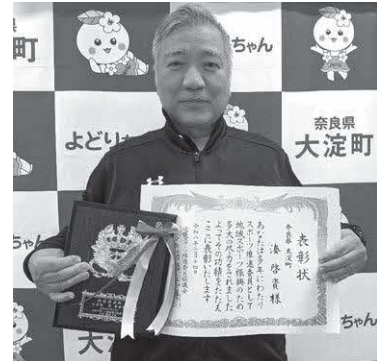 町
ちゃん
よどりち
奈良県
大淀町
ちゃん
表彰状
奈良県 大淀町
湊 啓資 様
あなたは多年にわたり
スポーツ推進委員として
地域スポーツ振興のため
多大の尽力をされました
よってその功績をたたえ
ここに表彰いたします
大
ちゃん